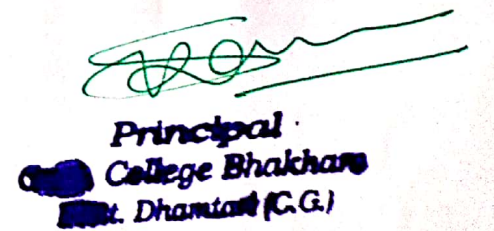 Principal
College Bhakhara
Dhamtari (C.G.)